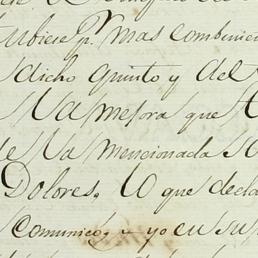 ubiese p.r mas combenien
dicho quinto y del
la mejora que
la mencionada
Dolores. lo que decla
comunico, y yo en su